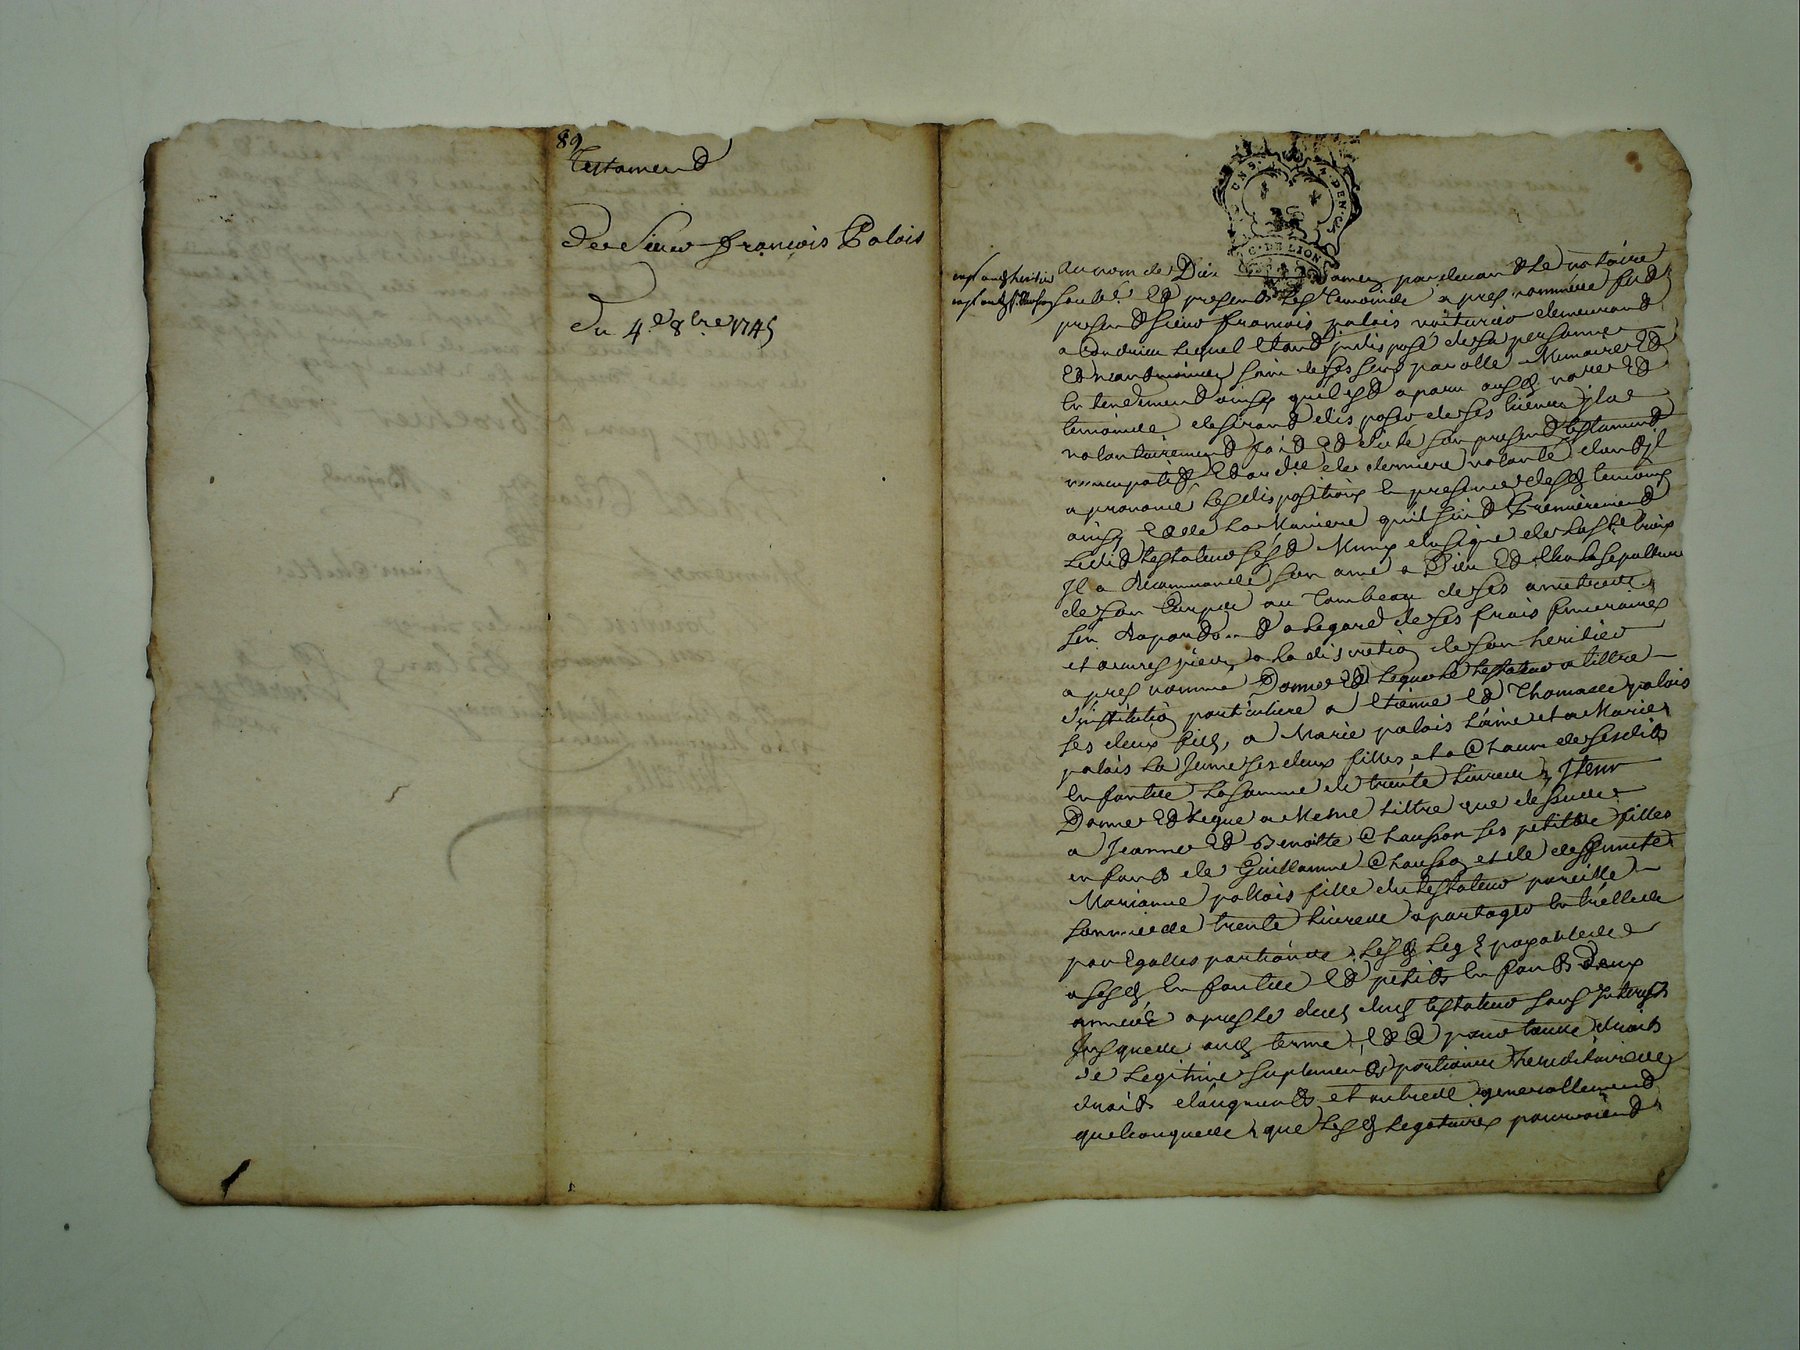 89
Testament
De Sieur françois Palais
Du 4e 8bre 1745
G. DE LION
Au nom de Dieu amen, pardevant Le notaire
soubsé Et presents Les Temoins apres nommés fut
present Sieur françois palais voiturier demeurant
a Condrieu Lequel Etant indisposé de sa personne
Et neanmoins sain de ses sens parolle Memoire Et
Entendement ainsy quil est aparu audt notre Et
temoins desirant disposer de ses biens jl a
volontairement fait Et dicté son present testament
nuncupatif Et ordce de derniere volonté dont jl
a prononcé Les dispositions En presence desds temoins
ainsy Et de La Maniere quil suit Premierement
Ledit testateur sest Muny du signe de La Ste Croix
Jl a Recommandé son ame a Dieu Et Elu La sepulture
de son Corps au Tombeau de ses ancetres
sen Raportant a Legard de ses frais funeraires
et œuvres pies, a La discretion de son heritier
apres nommé Donne Et Legue Le testateur a tiltre
dinstitution particuliere a Etienne Et Thomas palais
ses deux fils, a Marie palais Lainée et a Marie
palais La Jeune ses deux filles, et a Chacun de sesdits
Enfants La somme de trente Livres, Item
Donne Et Legue a Meme tiltre que dessus
a Jeanne Et Benoitte Chausson ses petittes filles
enfants de Guillaume Chausson et de deffunte
Marianne pallais fille du testateur pareille
somme de trente Livres a partager Entrelles
par Egalles portions, Lesds Legs payables
a sesds Enfants Et petits Enfants Deux
années apres Le deces dudt testateur sans Interests
Jusques audt terme, Et Ce pour tous droits
de Legitime suplement portions hereditaires
droits et autres generallement
quelconques que Lesds Legataires pourroient